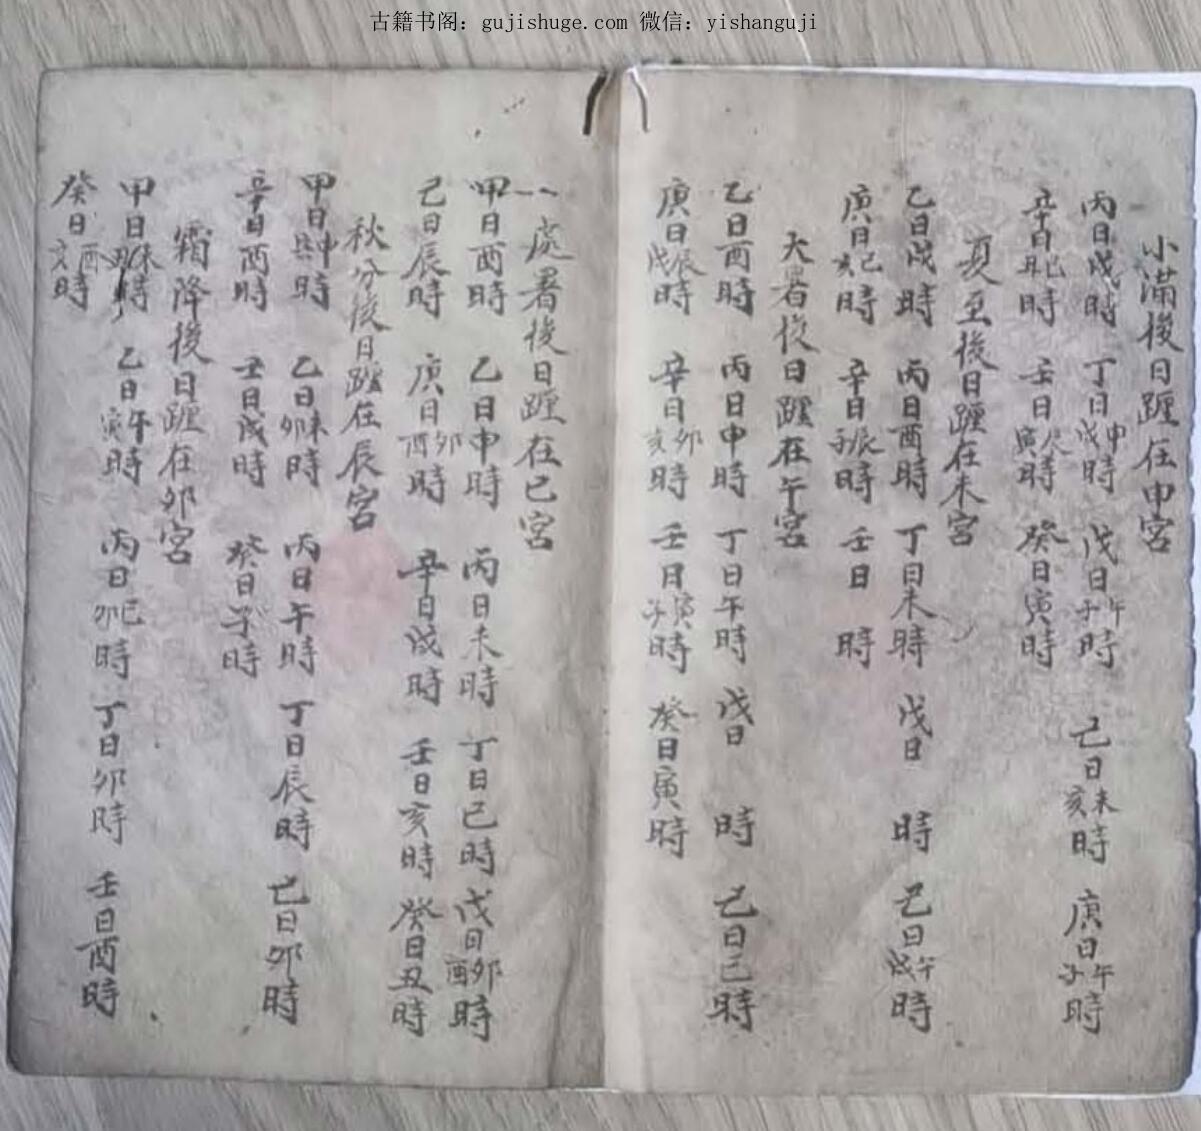 古籍书阁：gujishuge.com 微信：yishanguji
小滿後日躔在申宮
丙日戌時 丁日申戌時 戊日午子時 己日未亥時 庚日午子時
辛日巳丑時 壬日辰寅時 癸日寅時
夏至後日躔在未宮
乙日戌時 丙日酉時 丁日未時 戊日 時 己日午戌時
庚日巳亥時 辛日辰子時 壬日 時
大暑後日躔在午宮
乙日酉時 丙日申時 丁日午時 戊日 時 己日巳時
庚日辰戌時 辛日卯亥時 壬日寅子時 癸日寅時
一處暑後日躔在巳宮
甲日酉時 乙日申時 丙日未時 丁日巳時 戊日卯酉時
己日辰時 庚日卯酉時 辛日戌時 壬日亥時 癸日丑時
秋分後日躔在辰宮
甲日申時 乙日未卯時 丙日午時 丁日辰時 己日卯時
辛日酉時 壬日戌時 癸日子時
霜降後日躔在卯宮
甲日未時 乙日午寅時 丙日巳卯時 丁日卯時 壬日酉時
癸日酉亥時